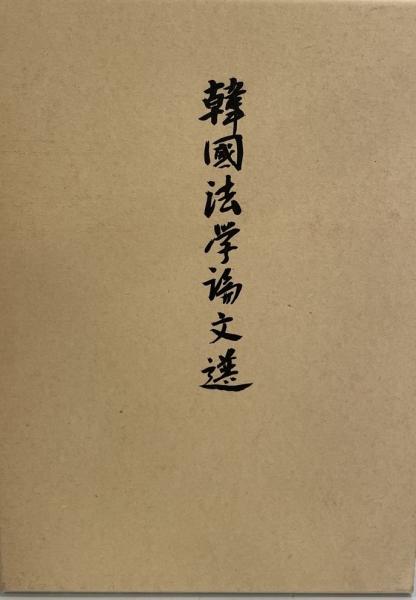 韓國法学論文選